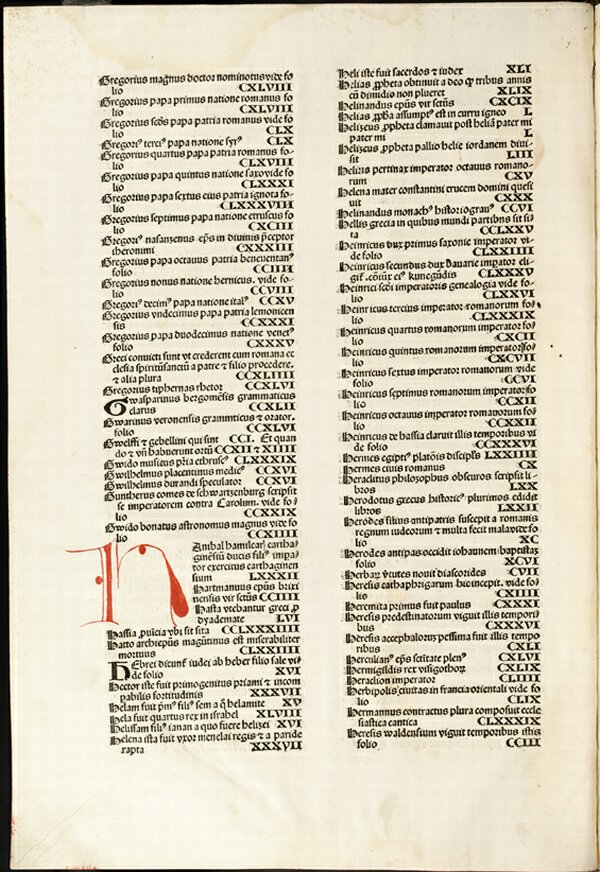 Gregorius magnus doctor nominatus vide fo
lio CXLVIII
Gregorius papa primus natione romanus fo
lio CXLVIII
Gregorius scds papa patria romanus vide fo
lio CLX
Gregori⁹ terci⁹ papa natione syr⁹ CLX
Gregorius quartus papa patria romanus fo-
lio CLXVIII
Gregorius papa quintus natione saxo vide fo
lio CLXXXI
Gregorius papa sextus eius patria ignota fo-
lio CLXXXVIII
Gregorius septimus papa natione etruscus fo
lio CXCIII
Gregori⁹ nasanzenus ep̄s in diuinis p̄ceptor
iheronimi CXXXIII
Gregorius papa octauus patria beneuentan⁹
folio CCIIII
Gregorius nonus natione hernicus. vide fo-
lio CCVIII
Gregori⁹ decim⁹ papa natione ital⁹ CCXV
Gregorius vndecimus papa patria lemonicen
sis CCXXXI
Gregorius papa duodecimus natione venet⁹
folio CXXXV
Greci conuicti sunt vt crederent cum romana ec
clesia spiritūsanctū a patre ⁊ filio procedere.
⁊ alia plura CCXLIIII
Gregorius tiphernas rhetor CCXLVI
Gwasparinus bergomēsis grammaticus
clarus CCXLII
Gwarinus veronensis grammaticus ⁊ orator.
folio CCXLVI
Gwelffi ⁊ gebellini qui sint CCI. Et quan
do ⁊ vn̄ habuerunt ortū CCXII ⁊ XIIII
Gwido musicus p̄ria ethrusc⁹ CLXXXIX
Gwilhelmus placentinus medic⁹ CCXVI
Gwilhelmus durandi speculator CCXVI
Guntherus comes de schwartzenburg scripsit
se imperatorem contra Carolum. vide fo-
lio CCXXIX
Gwido bonatus astronomus magnus vide fo
lio CCXIIII
H
Anibal hamilcaris cartha-
ginēsiū ducis fili⁹ impa-
tor exercitus carthaginen
sium LXXXII
Hartmannus ep̄us brixi
nensis vir sctūs CCIIII
Hasta vtebantur greci p̱
dyademate LVI
Hassia ꝓuīcia vbi sit sita CCLXXXIIII
Hatto archiep̄us magūtinus est miserabiliter
mortuus CLXXIIII
Hebrei dicunt̄ iudei ab heber filio sale vi-
de folio XVI
Hector iste fuit primogenitus priami ⁊ incom
pabilis fortitudinis XXXVII
Helam fuit pm⁹ fili⁹ sem a q̄ helamite XV
Hela fuit quartus rex in israhel XLVIII
Helissam fili⁹ ianan a quo fuere helizei XVI
Helena ista fuit vxor menelai regis ⁊ a paride
rapta XXXVII
Heli iste fuit sacerdos ⁊ iudex XLI
Helias ꝓpheta obtinuit a deo q̄ tribus annis
cū dimidio non plueret XLIX
Helinandus ep̄us vir sctūs CXCIX
Helias ꝓp̄ha assumpt⁹ est in curru igneo L
Helizeus ꝓpheta clamauit post heliā pater mi
pater mi L
Helizeus ꝓpheta pallio helie iordanem diui-
sit LIII
Helius pertinax imperator octauus romano-
rum CXV
Helena mater constantini crucem domini quesi
uit CXXX
Helinandus monach⁹ historiograu⁹ CCVI
Hellis grecia in quibus mundi partibus sit si
ta CCLXXV
Heinricus dux primus saxonie imperator vi-
de folio CLXXIIII
Heinricus secundus dux bauarie impator eli-
git̄ .cōiūx ei⁹ kunegūdis CLXXXV
Heinrici scdi imperatoris genealogia vide fo-
lio CLXXVI
Heinricus tercius imperator romanorum fo-
lio CLXXXIX
Heinricus quartus romanorum imperator fo-
lio CXCII
Heinricus quintus romanorum imperator fo-
lio CXCVII
Heinricus sextus imperator romanorum vide
folio CCVI
Heinricus septimus romanorum imperator fo
lio CCXII
Heinricus octauus imperator romanorum fo-
lio CCXXII
Heinricus de hassia claruit illis temporibus vi
de folio CCXXXVI
Hermes egipt⁹ platōis discipl̄s LXXIIII
Hermes ciuis romanus CX
Heraclitus philosophus obscuros scripsit li-
bros LXX
Herodotus grecus historic⁹ plurimos edidit
libros LXXII
Herodes filius antipatris suscepit a romanis
regnum iudeorum ⁊ multa fecit mala vide fo
lio XC
Herodes antipas occidit iohannem baptistaʒ
folio XCVI
Herbaꝝ v̄tutes nouit diascorides CVII
Heresis cathaphrigarum hic incepit. vide fo-
lio CXIIII
Heremita primus fuit paulus CXXXI
Heresis predestinatorum viguit illis tempori
bus CXXXVI
Heresis accephaloꝝ pessima fuit illis tempo
ribus CXLI
Herculian⁹ ep̄s setitate plen⁹ CXLVI
Hermigildis rex visigothoꝝ CXLIX
Heraclion imperator CLIIII
Herbipolis ciuitas in francia orientali vide fo
lio CLIX
Hermannus contractus plura composuit eccle
siastica cantica CLXXXIX
Heresis waldensium viguit temporibus istis
folio CCIII